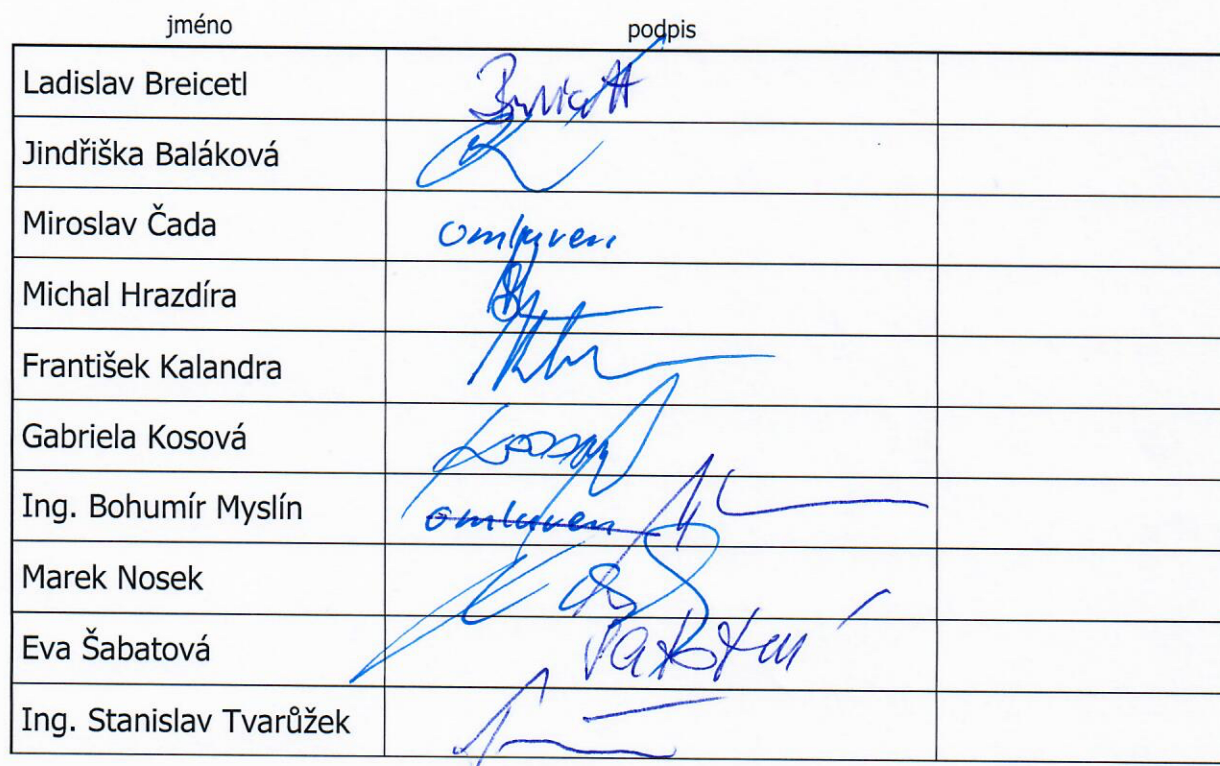 jméno podpis
Ladislav Breicetl
Jindřiška Baláková
Miroslav Čada omluven
Michal Hrazdíra
František Kalandra
Gabriela Kosová
Ing. Bohumír Myslín omluven
Marek Nosek
Eva Šabatová
Ing. Stanislav Tvarůžek